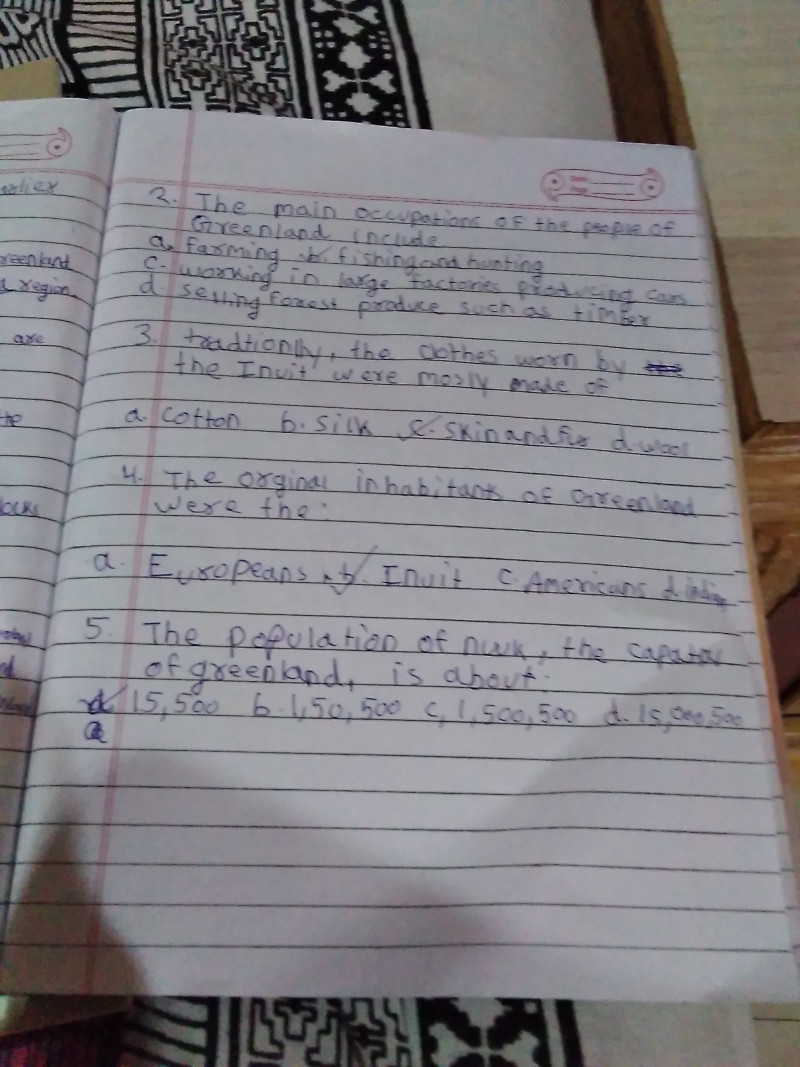 earlier
reenland
region
are
2. The main occupations of the people of
Greenland include
a. farming b. fishing and hunting
c. working in large factories producing cars
d. selling forest produce such as timber
3. tradtionlly, the clothes worn by the
the Inuit were mosly made of
a. cotton b. silk c. skin and fur d. wool
4. The orginal inhabitants of Greenland
were the:
a. Europeans b. Inuit c. Americans
5. The population of nuuk, the
of greenland, is about:
15,500 b. 1,50,500 c, 1,500,500 d. 15,000,500
a